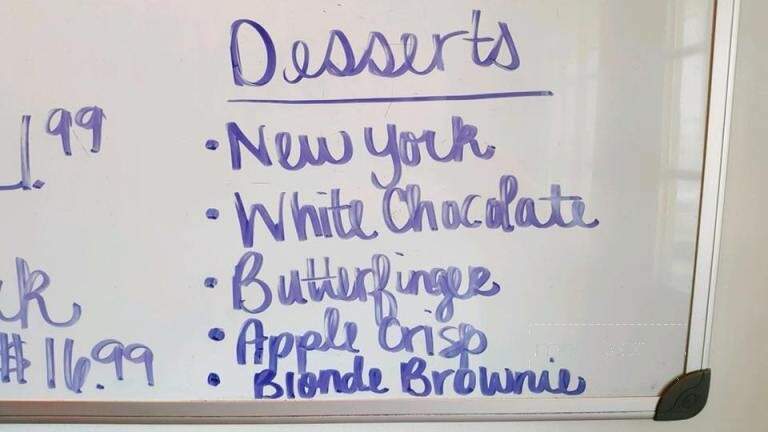 Desserts
.99
• New York
• White Chocolate
• Butterfinger
• Apple Crisp
$16.99
• Blonde Brownie